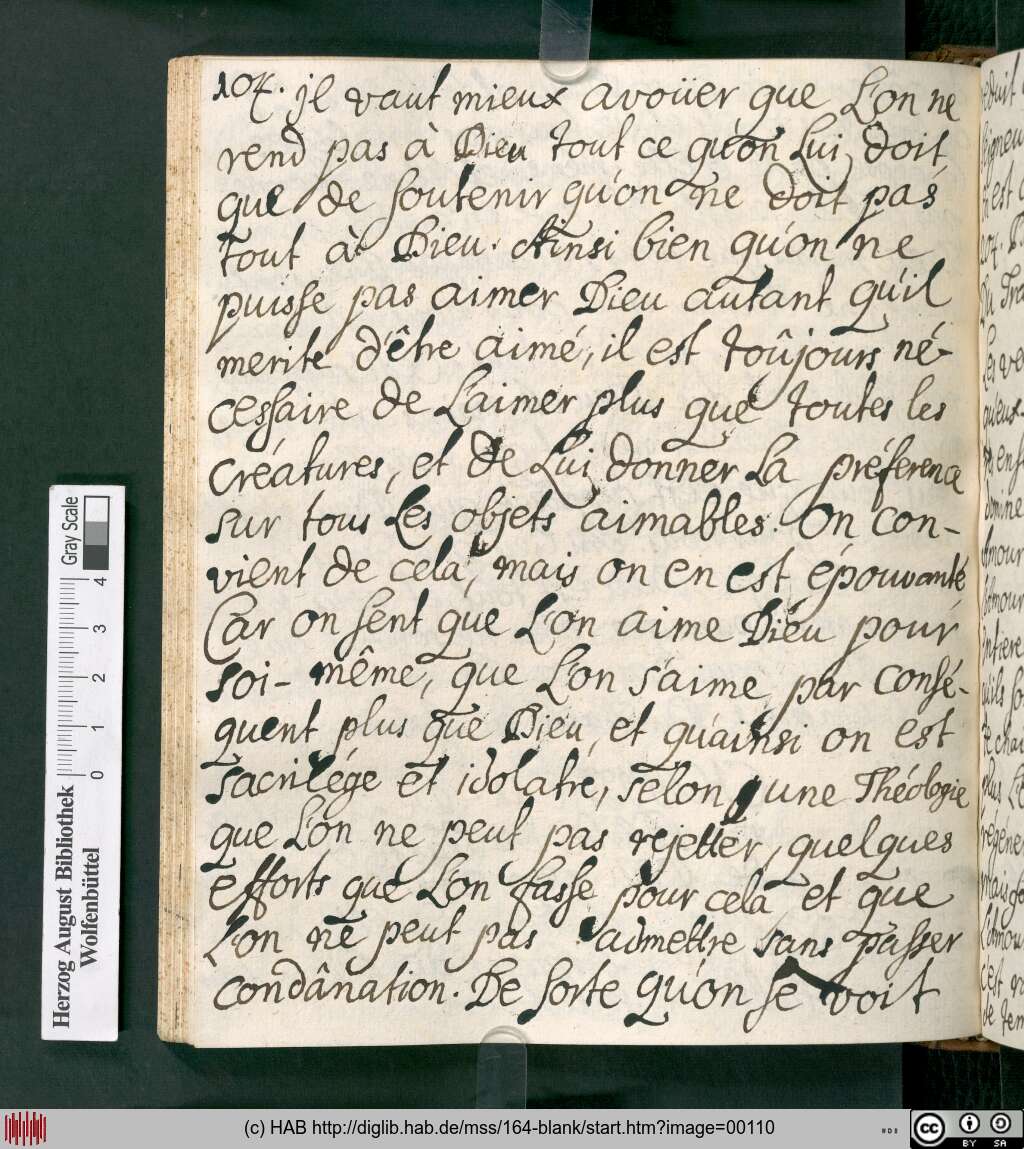 104. jl vaut mieux avoüer que L'on ne
rend pas à Dieu tout ce qu'on Lui doit,
que de soutenir qu'on ne doit pas
tout à Dieu. Ainsi bien qu'on ne
puisse pas aimer Dieu autant qu'il
merite d'être aimé, il est toûjours né-
cessaire de L'aimer plus que toutes les
créatures, et de Lui donner La préference
sur tous Les objets aimables. On con-
vient de cela, mais on en est épouvanté
Car on sent que L'on aime Dieu pour
soi-même, que L'on s'aime par consé-
quent plus que Dieu, et qu'ainsi on est
sacrilége et idolatre, selon une Théologie
que L'on ne peut pas rejetter, quelques
efforts que L'on fasse pour cela et que
L'on ne peut pas admettre sans passer
condânation. De sorte qu'on se voit
Herzog August Bibliothek
Wolfenbüttel
0 1 2 3 4
Gray Scale
(c) HAB http://diglib.hab.de/mss/164-blank/start.htm?image=00110
cc BY SA